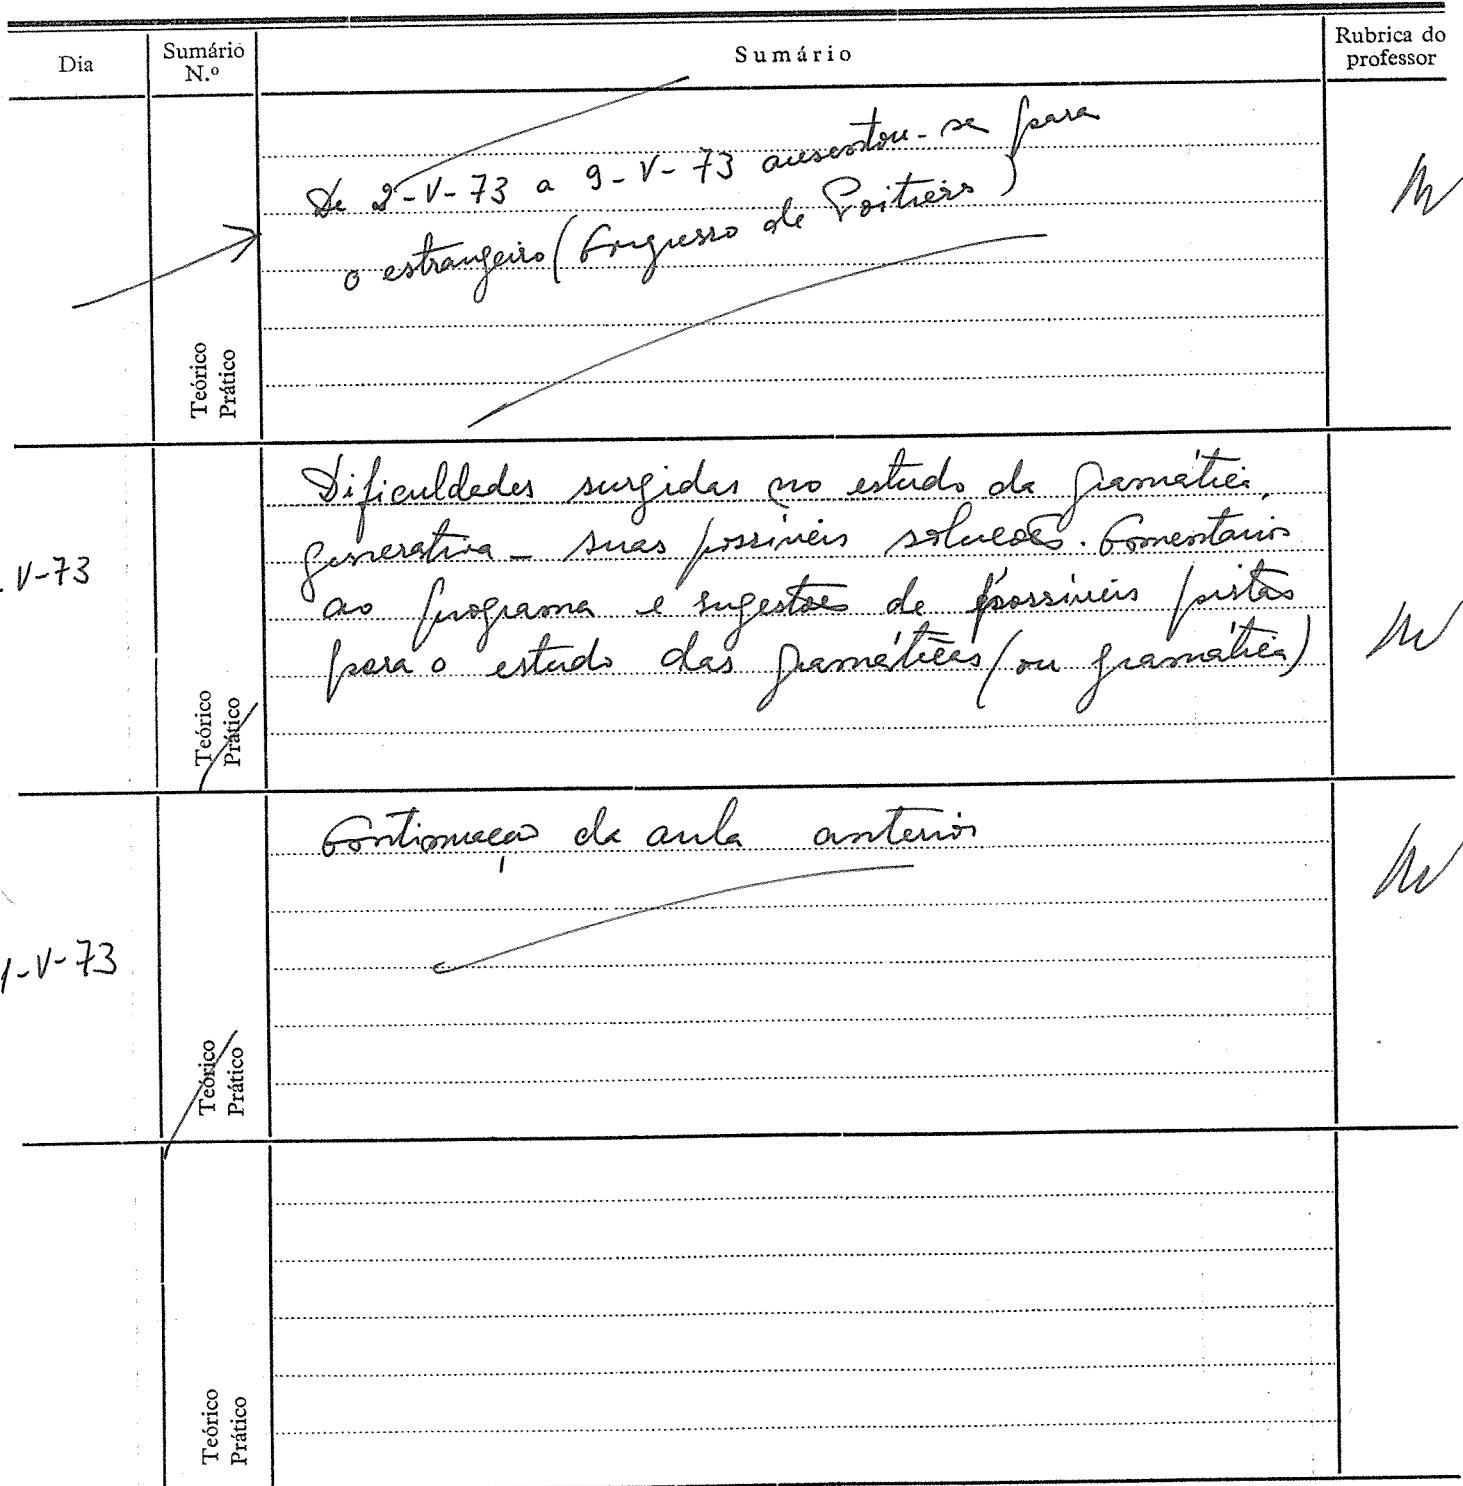 Dia
Sumário
N.º
Sumário
Rubrica do
professor
De 2-V-73 a 9-V-73 ausentou-se para
o estrangeiro (Congresso de Poitiers)
Teórico
Prático
V-73
Dificuldades surgidas no estudo da gramática
generativa – suas possíveis soluções. Comentários
ao programa e sugestões de possíveis pistas
para o estudo das gramáticas (ou gramática)
Teórico
Prático
1-V-73
Continuação da aula anterior
Teórico
Prático
Teórico
Prático